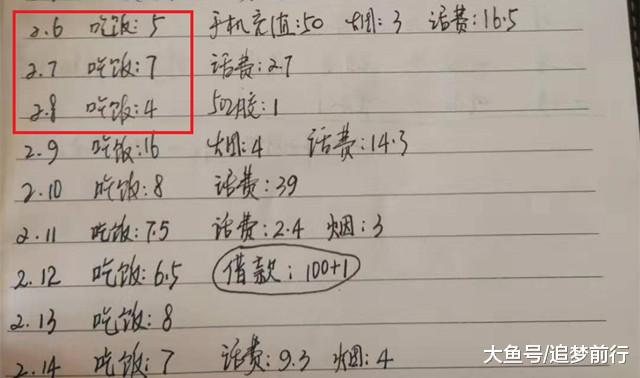 2.6 吃饭:5 手机充值:50 烟:3 话费:16.5
2.7 吃饭:7 话费:2.7
2.8 吃饭:4 502胶:1
2.9 吃饭:16 烟:4 话费:14.3
2.10 吃饭:8 话费:39
2.11 吃饭:7.5 话费:2.4 烟:3
2.12 吃饭:6.5 借款:100+1
2.13 吃饭:8
2.14 吃饭:7 话费:9.3 烟:4
大鱼号/追梦前行